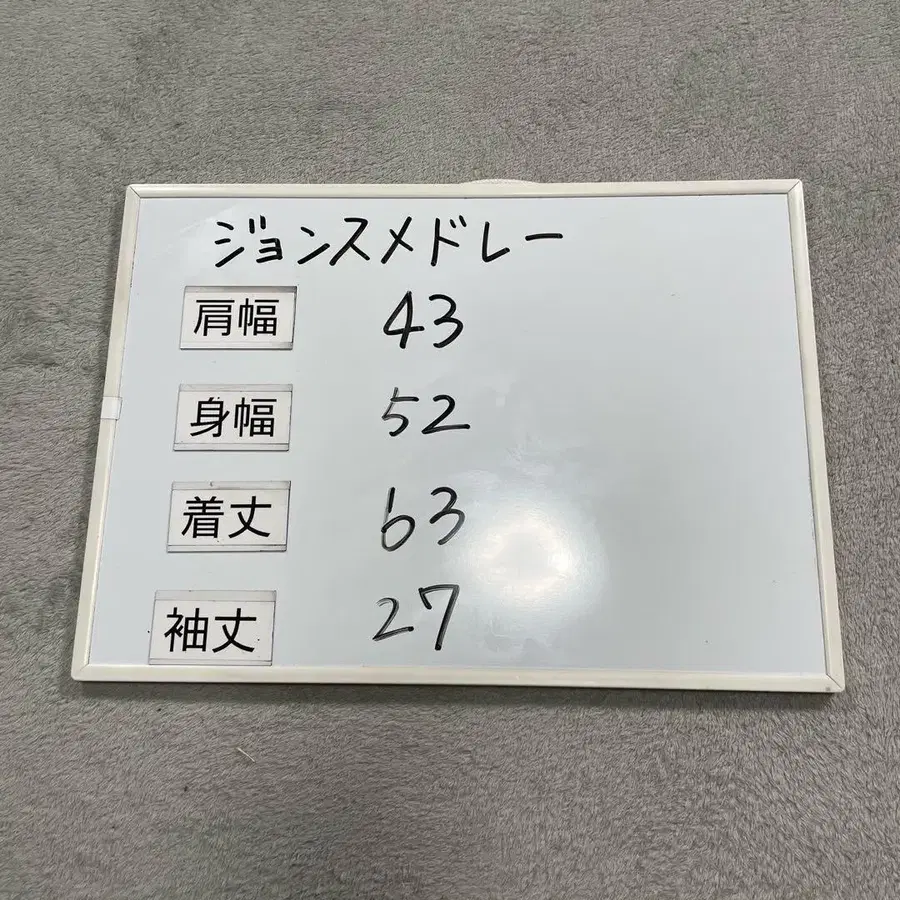 ジョンスメドレー
肩幅 43
身幅 52
着丈 63
袖丈 27